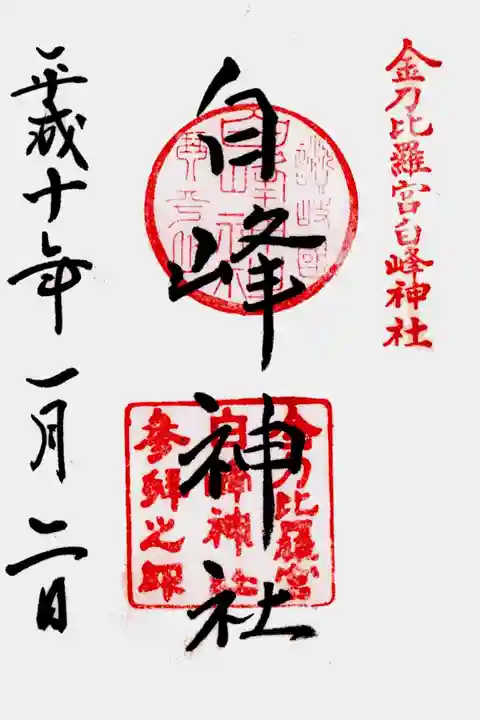 金刀比羅宮白峰神社
白峰神社
金刀比羅宮
白峰神社
参拜之印
平成十年一月二日